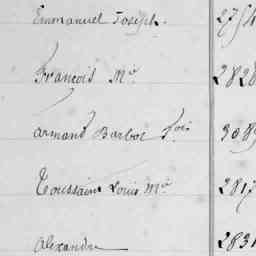 Emmanuel Joseph. 274
François Mie 2828
Armand Barbot fois 3089
Toussaint Louis Mie 2817
Alexandre 2831